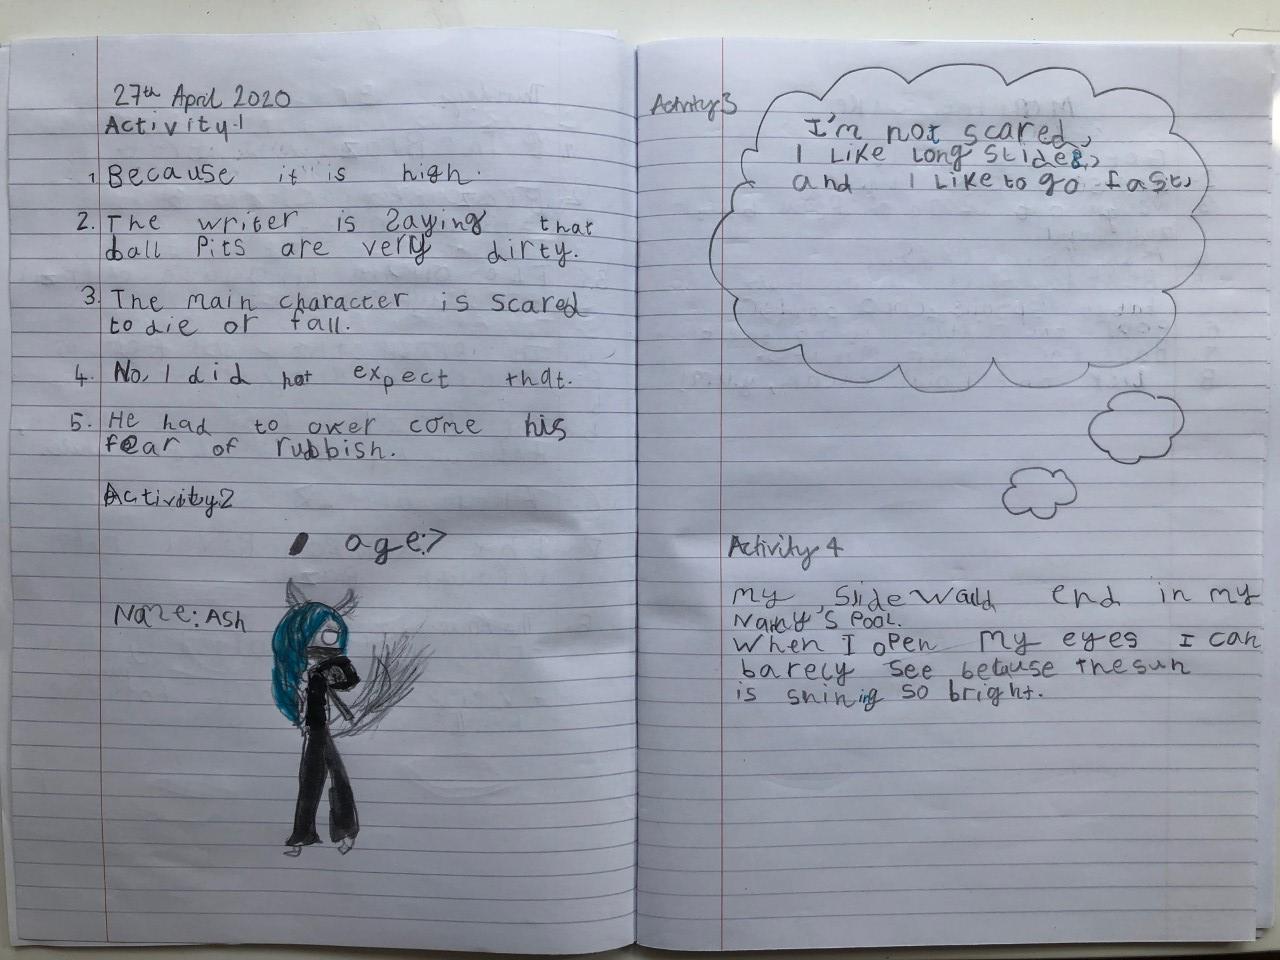 27th April 2020
Activity 1
1 Because it is high.
2. The writer is saying that
ball Pits are very dirty.
3. The main character is scared
to die or fall.
4. No, I did not expect that.
5. He had to over come his
fear of rubbish.
Activity 2
age:7
Name: Ash
Activity 3
I'm not scared,
I Like Long slides,
and I Like to go fast,
Activity 4
My slide would end in my
Nanny's Pool.
When I open my eyes I can
barely see because the sun
is shining so bright.